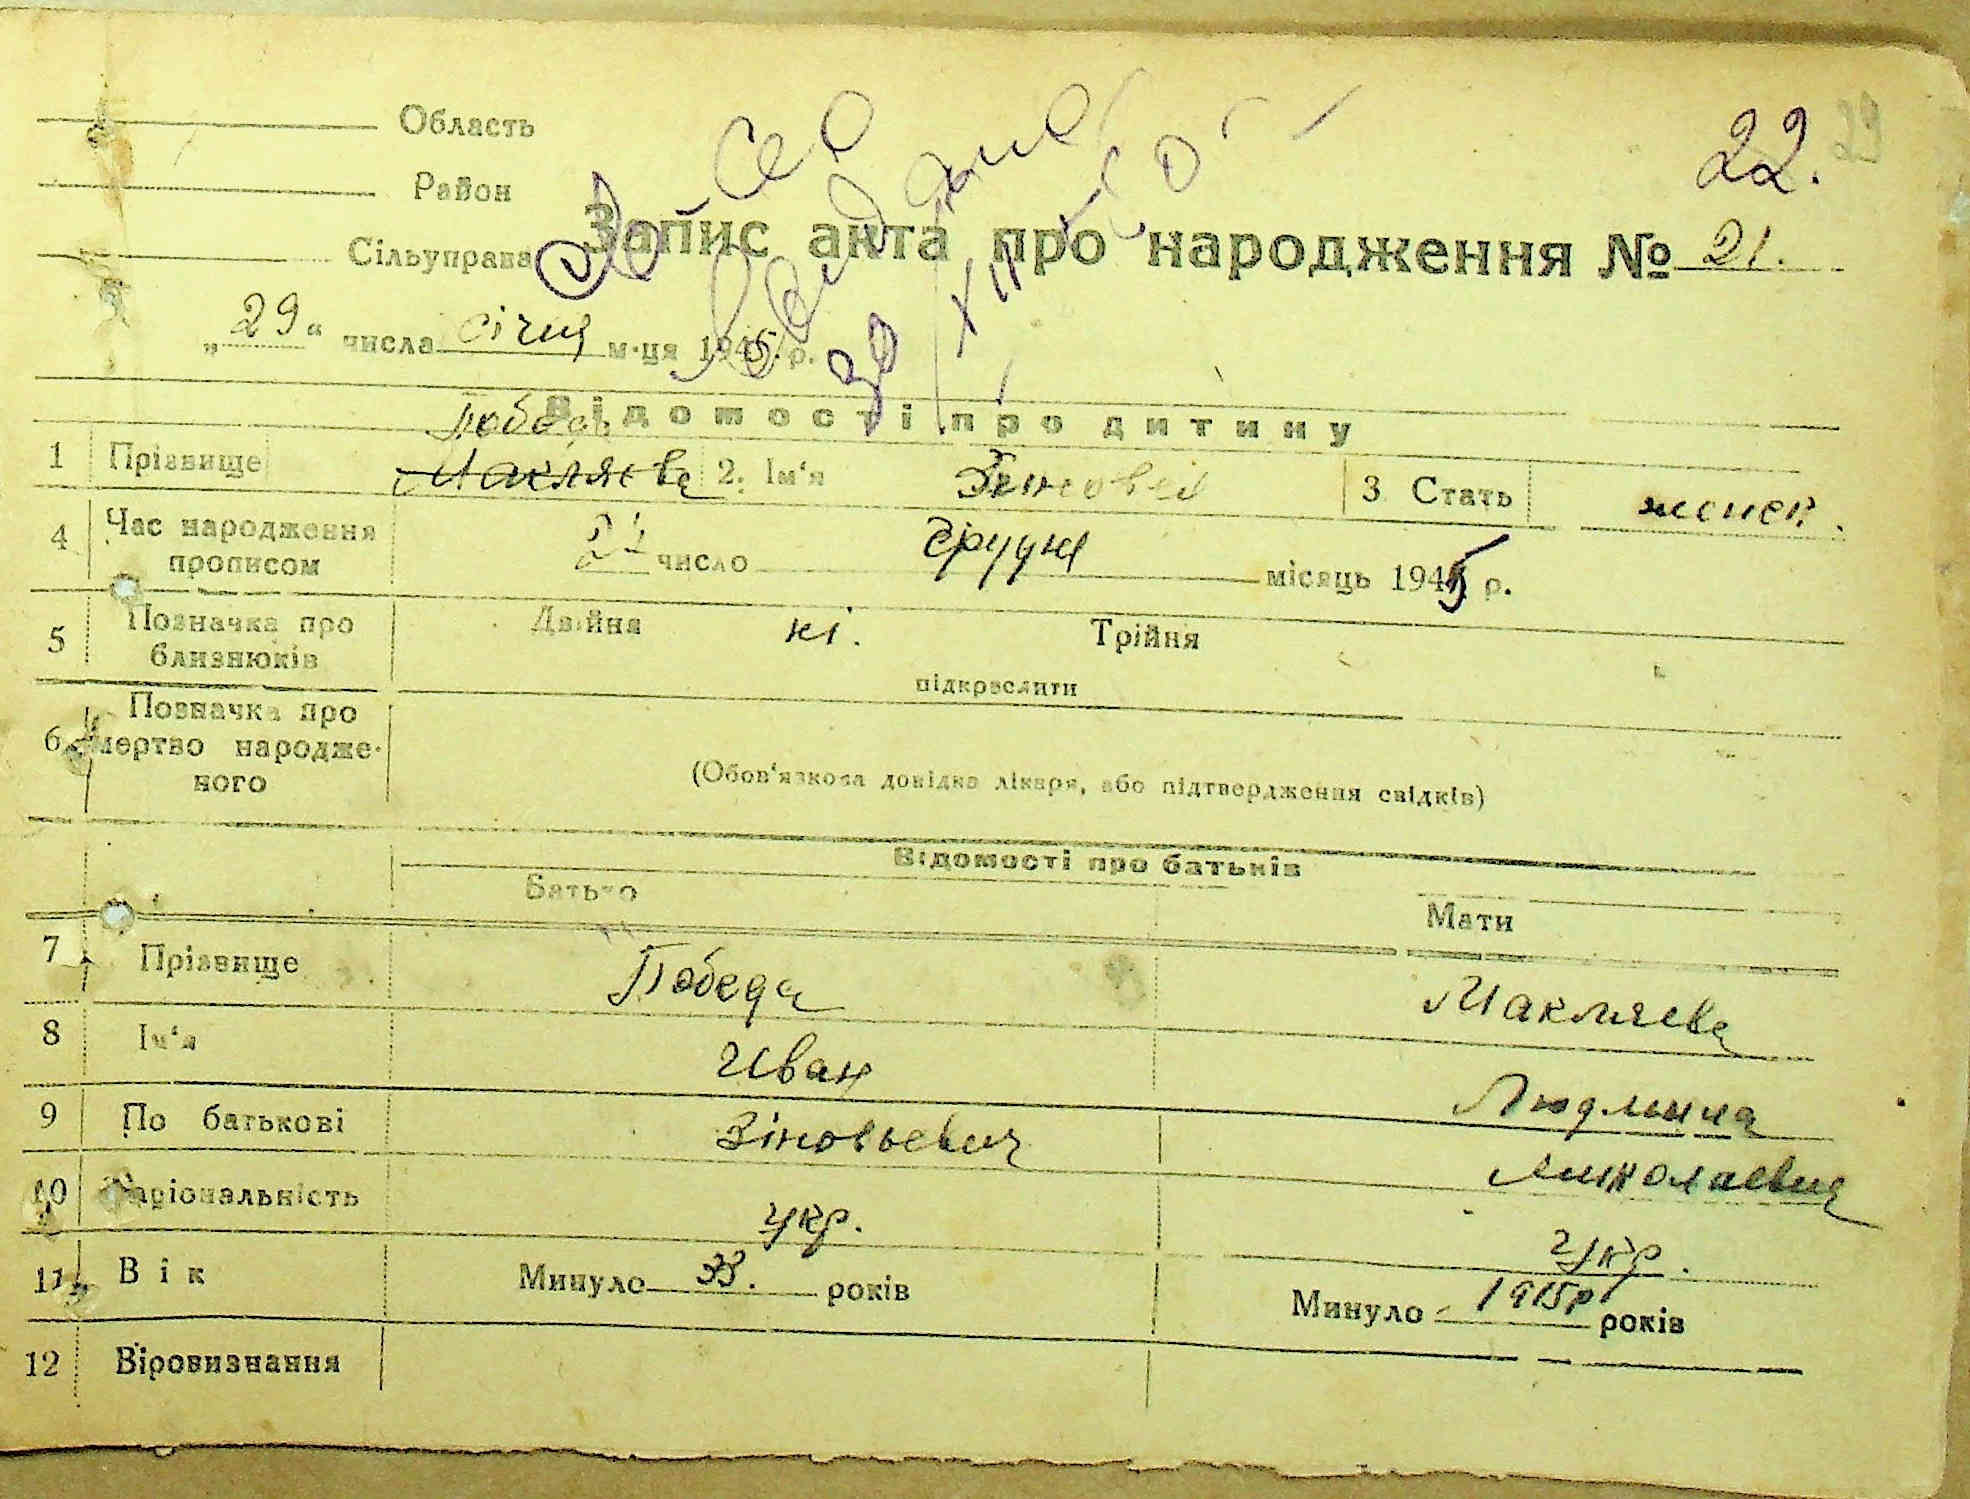 22.
Область
Район
Сільуправа
Запис акта про народження № 21.
„29“ числа січня м-ця 1945 р.
Відомості про дитину
Победа
1 Прізвище Макляєва 2. Ім‘я 3 Стать женск.
4 Час народження прописом 21 число грудня місяць 1945 р.
5 Позначка про близнюків Двійня ні. Трійня
підкреслити
6 Позначка про мертво народженого
(Обов‘язкова довідка лікаря, або підтвердження свідків)
Відомості про батьків
Батько Мати
7 Прізвище Победа Макляева
8 Ім‘я Иван Людмила
9 По батькові Зіновьевич Миколаевна
10 Національність укр. укр.
11 Вік Минуло 33. років Минуло 1915р років
12 Віровизнання